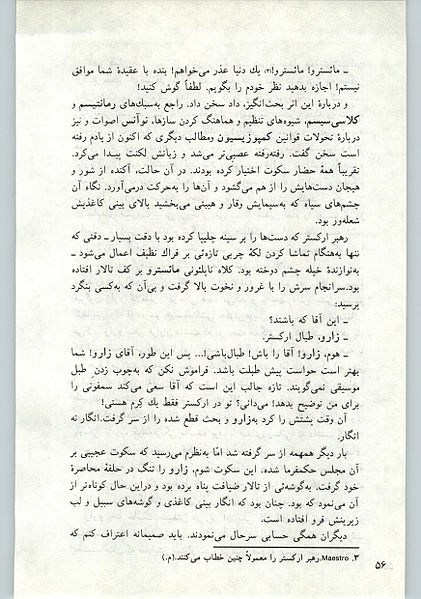 ـ مائسترو! مائسترو!(۳) یك دنیا عذر می‌خواهم! بنده با عقیدهٔ شما موافق
نیستم! اجازه بدهید نظر خودم را بگویم. لطفاً گوش کنید!
و دربارهٔ این اثر بحث‌انگیز، داد سخن داد. راجع به‌سبك‌های رمانتیسم و
کلاسی‌سیسم، شیوه‌های تنظیم و هماهنگ کردن سازها، نوآنس اصوات و نیز
دربارهٔ تحولات قوانین کمپوزیسیون ومطالب دیگری که اکنون از یادم رفته
است سخن گفت. رفته‌رفته عصبی‌تر می‌شد و زبانش لکنت پیدا می‌کرد.
تقریباً همهٔ حضار سکوت اختیار کرده بودند. در آن حالت، آکنده از شور و
هیجان دست‌هایش را از هم می‌گشود و آن‌ها را به‌حرکت درمی‌آورد. نگاه آن
چشم‌های سیاه که به‌سیمایش وقار و هیبتی می‌بخشید بالای بینی کاغذیش
شعله‌ور بود.
رهبر ارکستر که دست‌ها را بر سینه چلیپا کرده بود با دقت بسیار ـ دقتی که
تنها به‌هنگام تماشا کردن لکهٔ چربی تازه‌ئی بر فراك نظیف اعمال می‌شود ـ
به‌نوازندهٔ خپله چشم دوخته بود. کلاه ناپلئونی مائسترو بر کف تالار افتاده
بود.سرانجام سرش را با غرور و نخوت بالا گرفت و بی‌آن که به‌کسی بنگرد
پرسید:
ـ این آقا که باشند؟
ـ زارو، طبال ارکستر.
ـ هوم، زارو! آقا را باش! طبال‌باشی!... پس این طور، آقای زارو! شما
بهتر است حواست پیش طبلت باشد. فراموش نکن که به‌چوب زدن طبل
موسیقی نمی‌گویند. تازه جالب این است که آقا سعی می‌کند سمفونی را
برای من توضیح بدهد! می‌دانی؟ تو در ارکستر فقط یك کرم هستی!
آن وقت پشتش را کرد به‌زارو و بحث قطع شده را از سر گرفت.انگار نه
انگار.
بار دیگر همهمه از سر گرفته شد امّا به‌نظرم می‌رسید که سکوت عجیبی بر
آن مجلس حکمفرما شده. این سکوت شوم، زارو را تنگ در حلقهٔ محاصرهٔ
خود گرفت. به‌گوشه‌ئی از تالار ضیافت پناه برده بود و دراین حال کوتاه‌تر از
آن می‌نمود که بود. چنان بود که انگار بینی کاغذی و گوشه‌های سبیل و لب
زیرینش فرو افتاده است.
دیگران همگی حسابی سرحال می‌نمودند. باید صمیمانه اعتراف کنم که
۳. Maestro.رهبر ارکستر را معمولاً چنین خطاب می‌کنند.(م.)
۵۶